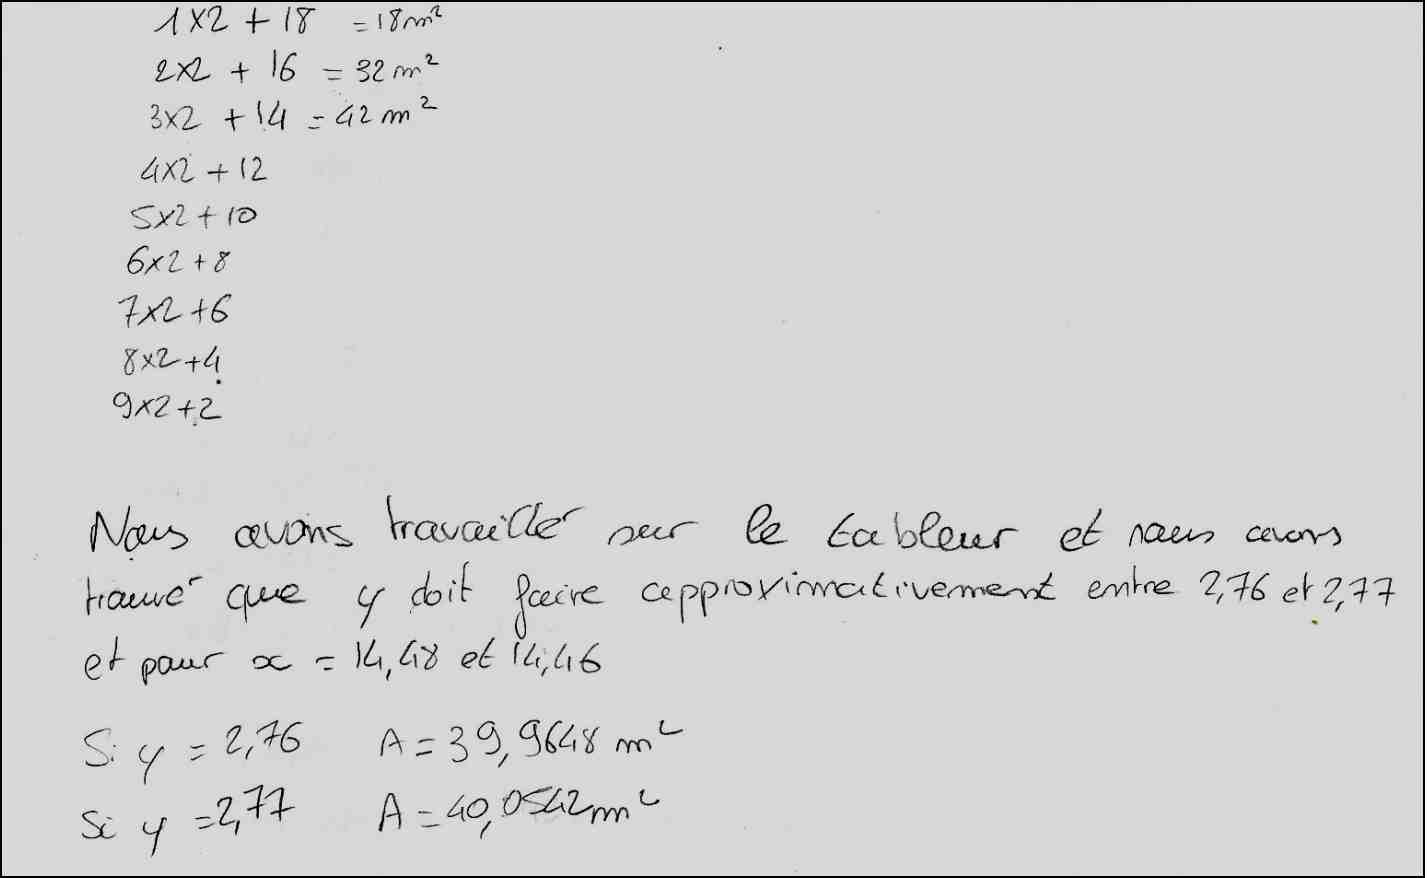 1x2 + 18 = 18m²
2x2 + 16 = 32m²
3x2 + 14 = 42m²
4x2 + 12
5x2 + 10
6x2 + 8
7x2 + 6
8x2 + 4
9x2 + 2
Nous avons travailler sur le tableur et nous avons
trouvé que y doit faire approximativement entre 2,76 et 2,77
et pour x = 14,48 et 14,46
Si y = 2,76 A = 39,9648 m²
Si y = 2,77 A = 40,0542 m²